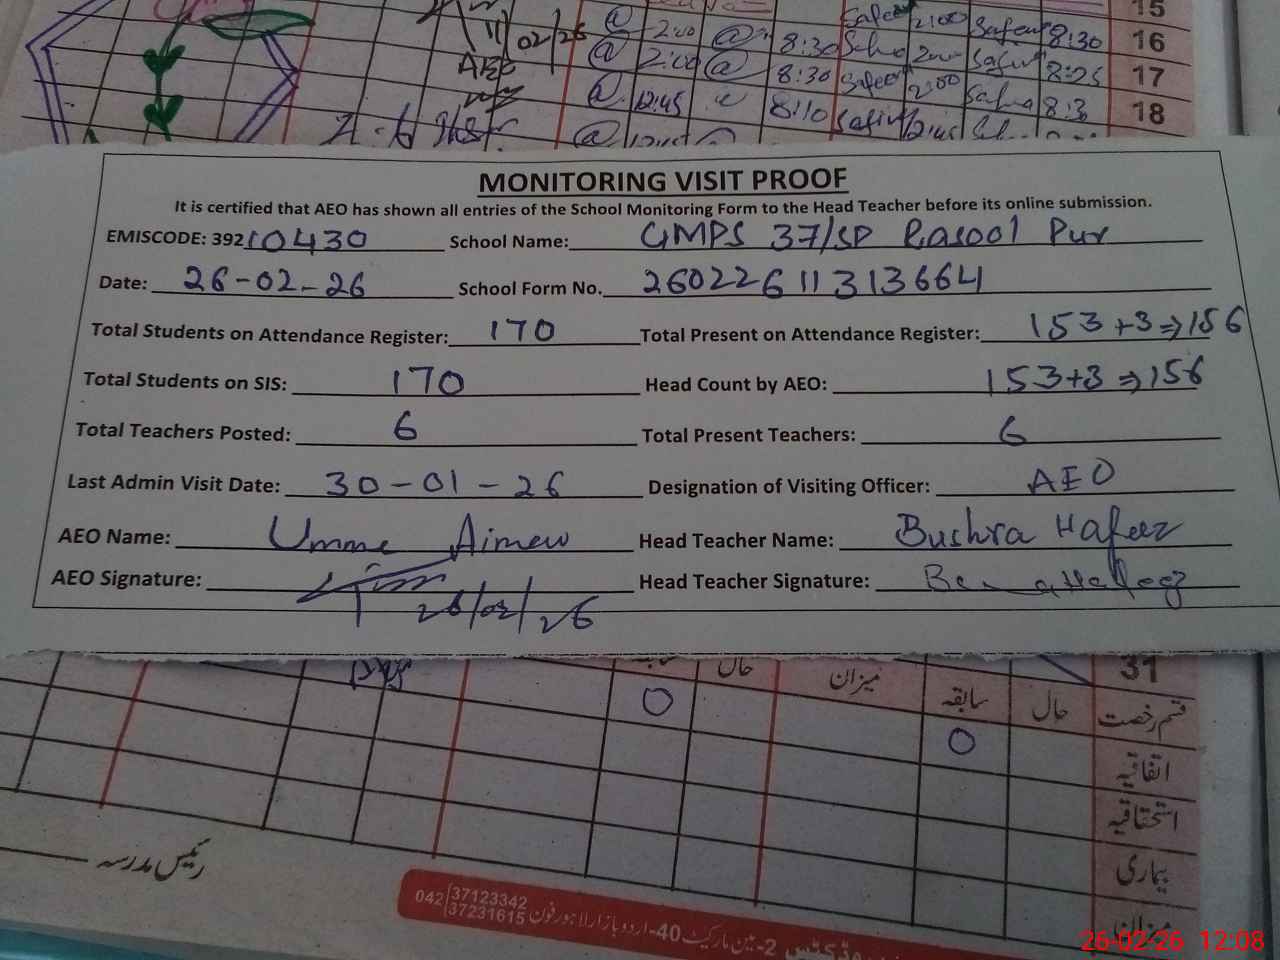 15
11/02/26 @ 2:00 @ 8:30 Safeer 2:00 Safeer 8:30 16
AEO @ 2:00 @ 8:30 Safeer 2:00 8:25 17
@ 12:45 8:10 8:3 18
@
MONITORING VISIT PROOF
It is certified that AEO has shown all entries of the School Monitoring Form to the Head Teacher before its online submission.
EMISCODE: 39210430 School Name: GMPS 37/SP Rasool Pur
Date: 26-02-26 School Form No. 26022611313664
Total Students on Attendance Register: 170 Total Present on Attendance Register: 153+3⇒156
Total Students on SIS: 170 Head Count by AEO: 153+3⇒156
Total Teachers Posted: 6 Total Present Teachers: 6
Last Admin Visit Date: 30-01-26 Designation of Visiting Officer: AEO
AEO Name: Umme Aimen Head Teacher Name: Bushra Hafeez
AEO Signature: Head Teacher Signature:
26/02/26
31
قسم رخصت حال سابقہ میزان حال
0
اتفاقیہ 0
استحقاقیہ
بیماری
میزان
رئیس مدرسہ
2-مین مارکیٹ 40-اردو بازار لاہور فون 042 37123342 37231615
26-02-26 12:08